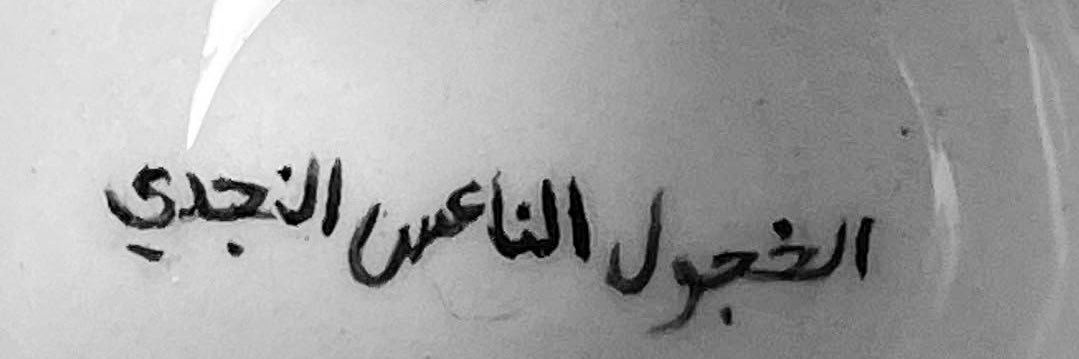 الخجول الناعس النجدي